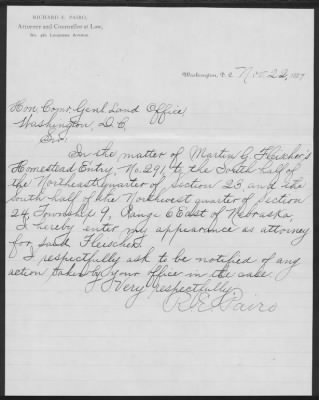 RICHARD E. PAIRO,
Attorney and Counsellor at Law,
Washington, D. C. Nov. 22, 1887
Hon. Comr. Genl. Land Office,
Washington, D.C.
Sir:
In the matter of Martin G. Fleischer's
Homestead Entry, No. 291, to the South half of
the Northeast quarter of Section 23 and the
South half of the Northwest quarter of Section
24, Township 9, Range 6 East of Nebraska,
I hereby enter my appearance as attorney
for said Fleischer.
I respectfully ask to be notified of any
action taken by your office in the case.
Very respectfully,
R. E. Pairo